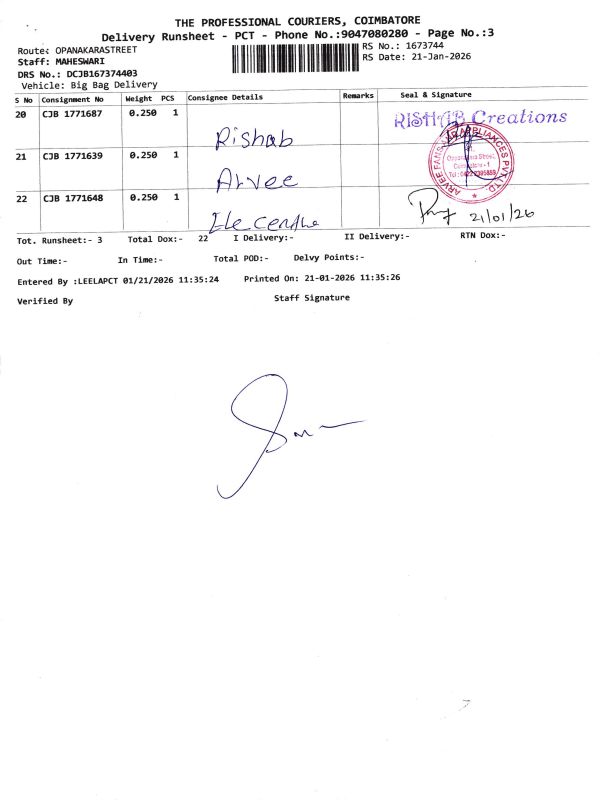 THE PROFESSIONAL COURIERS, COIMBATORE
Delivery Runsheet - PCT - Phone No.:9047080280 - Page No.:3
Route: OPANAKARASTREET
RS No.: 1673744
Staff: MAHESWARI
RS Date: 21-Jan-2026
DRS No.: DCJB167374403
Vehicle: Big Bag Delivery
S No Consignment No Weight PCS Consignee Details Remarks Seal & Signature
20 CJB 1771687 0.250 1 Rishab RISHAB Creations
21 CJB 1771639 0.250 1 Arvee
ARVEE FANS AND APPLIANCES PVT LTD
Oppanakara Street,
Coimbatore - 1
22 CJB 1771648 0.250 1 21/01/26
Tot. Runsheet:- 3 Total Dox:- 22 I Delivery:- II Delivery:- RTN Dox:-
Out Time:- In Time:- Total POD:- Delvy Points:-
Entered By :LEELAPCT 01/21/2026 11:35:24 Printed On: 21-01-2026 11:35:26
Verified By Staff Signature